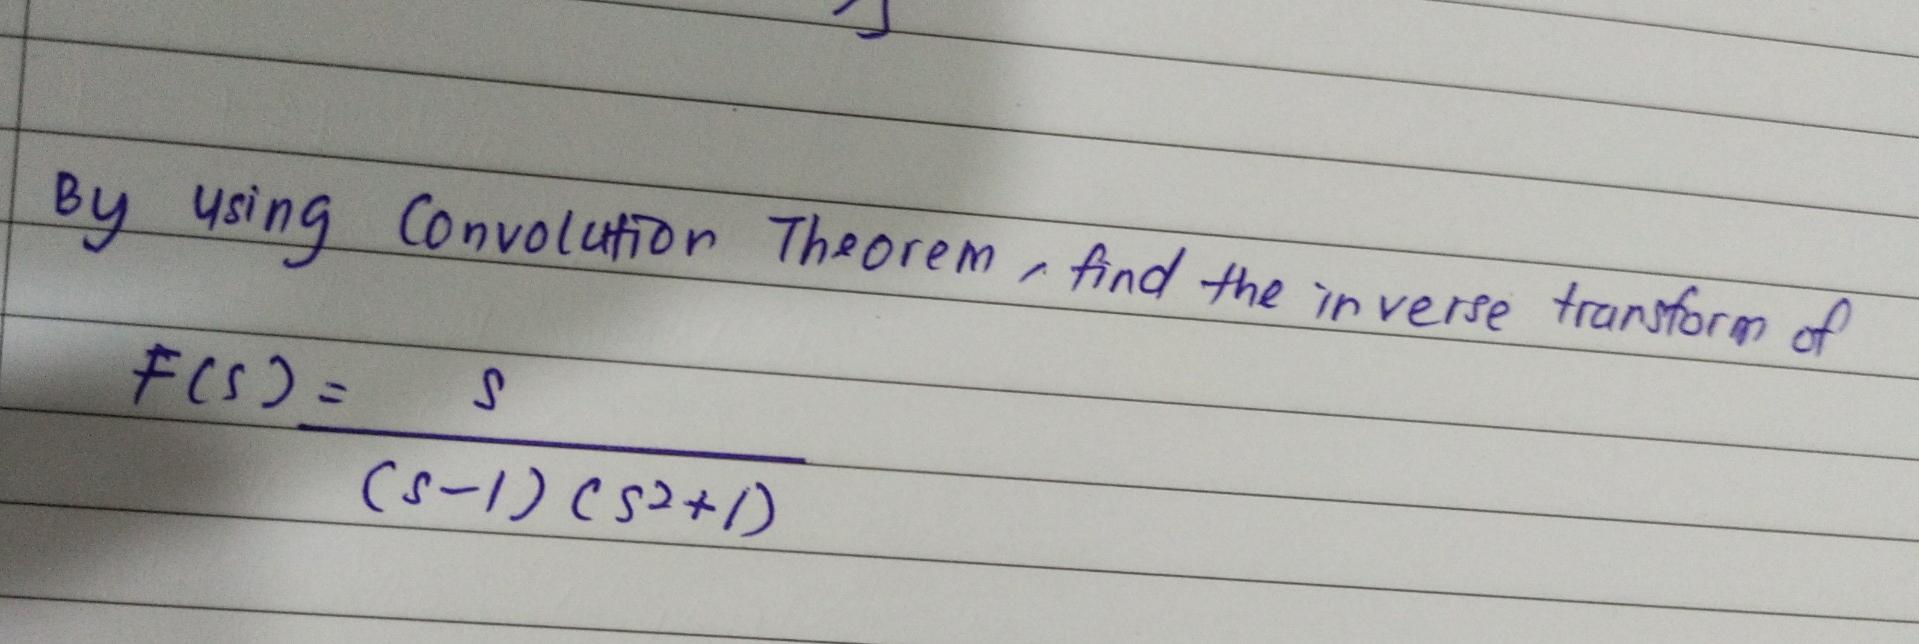 By using Convolution Theorem, find the inverse transform of
F(s) = s
(s-1) (s²+1)